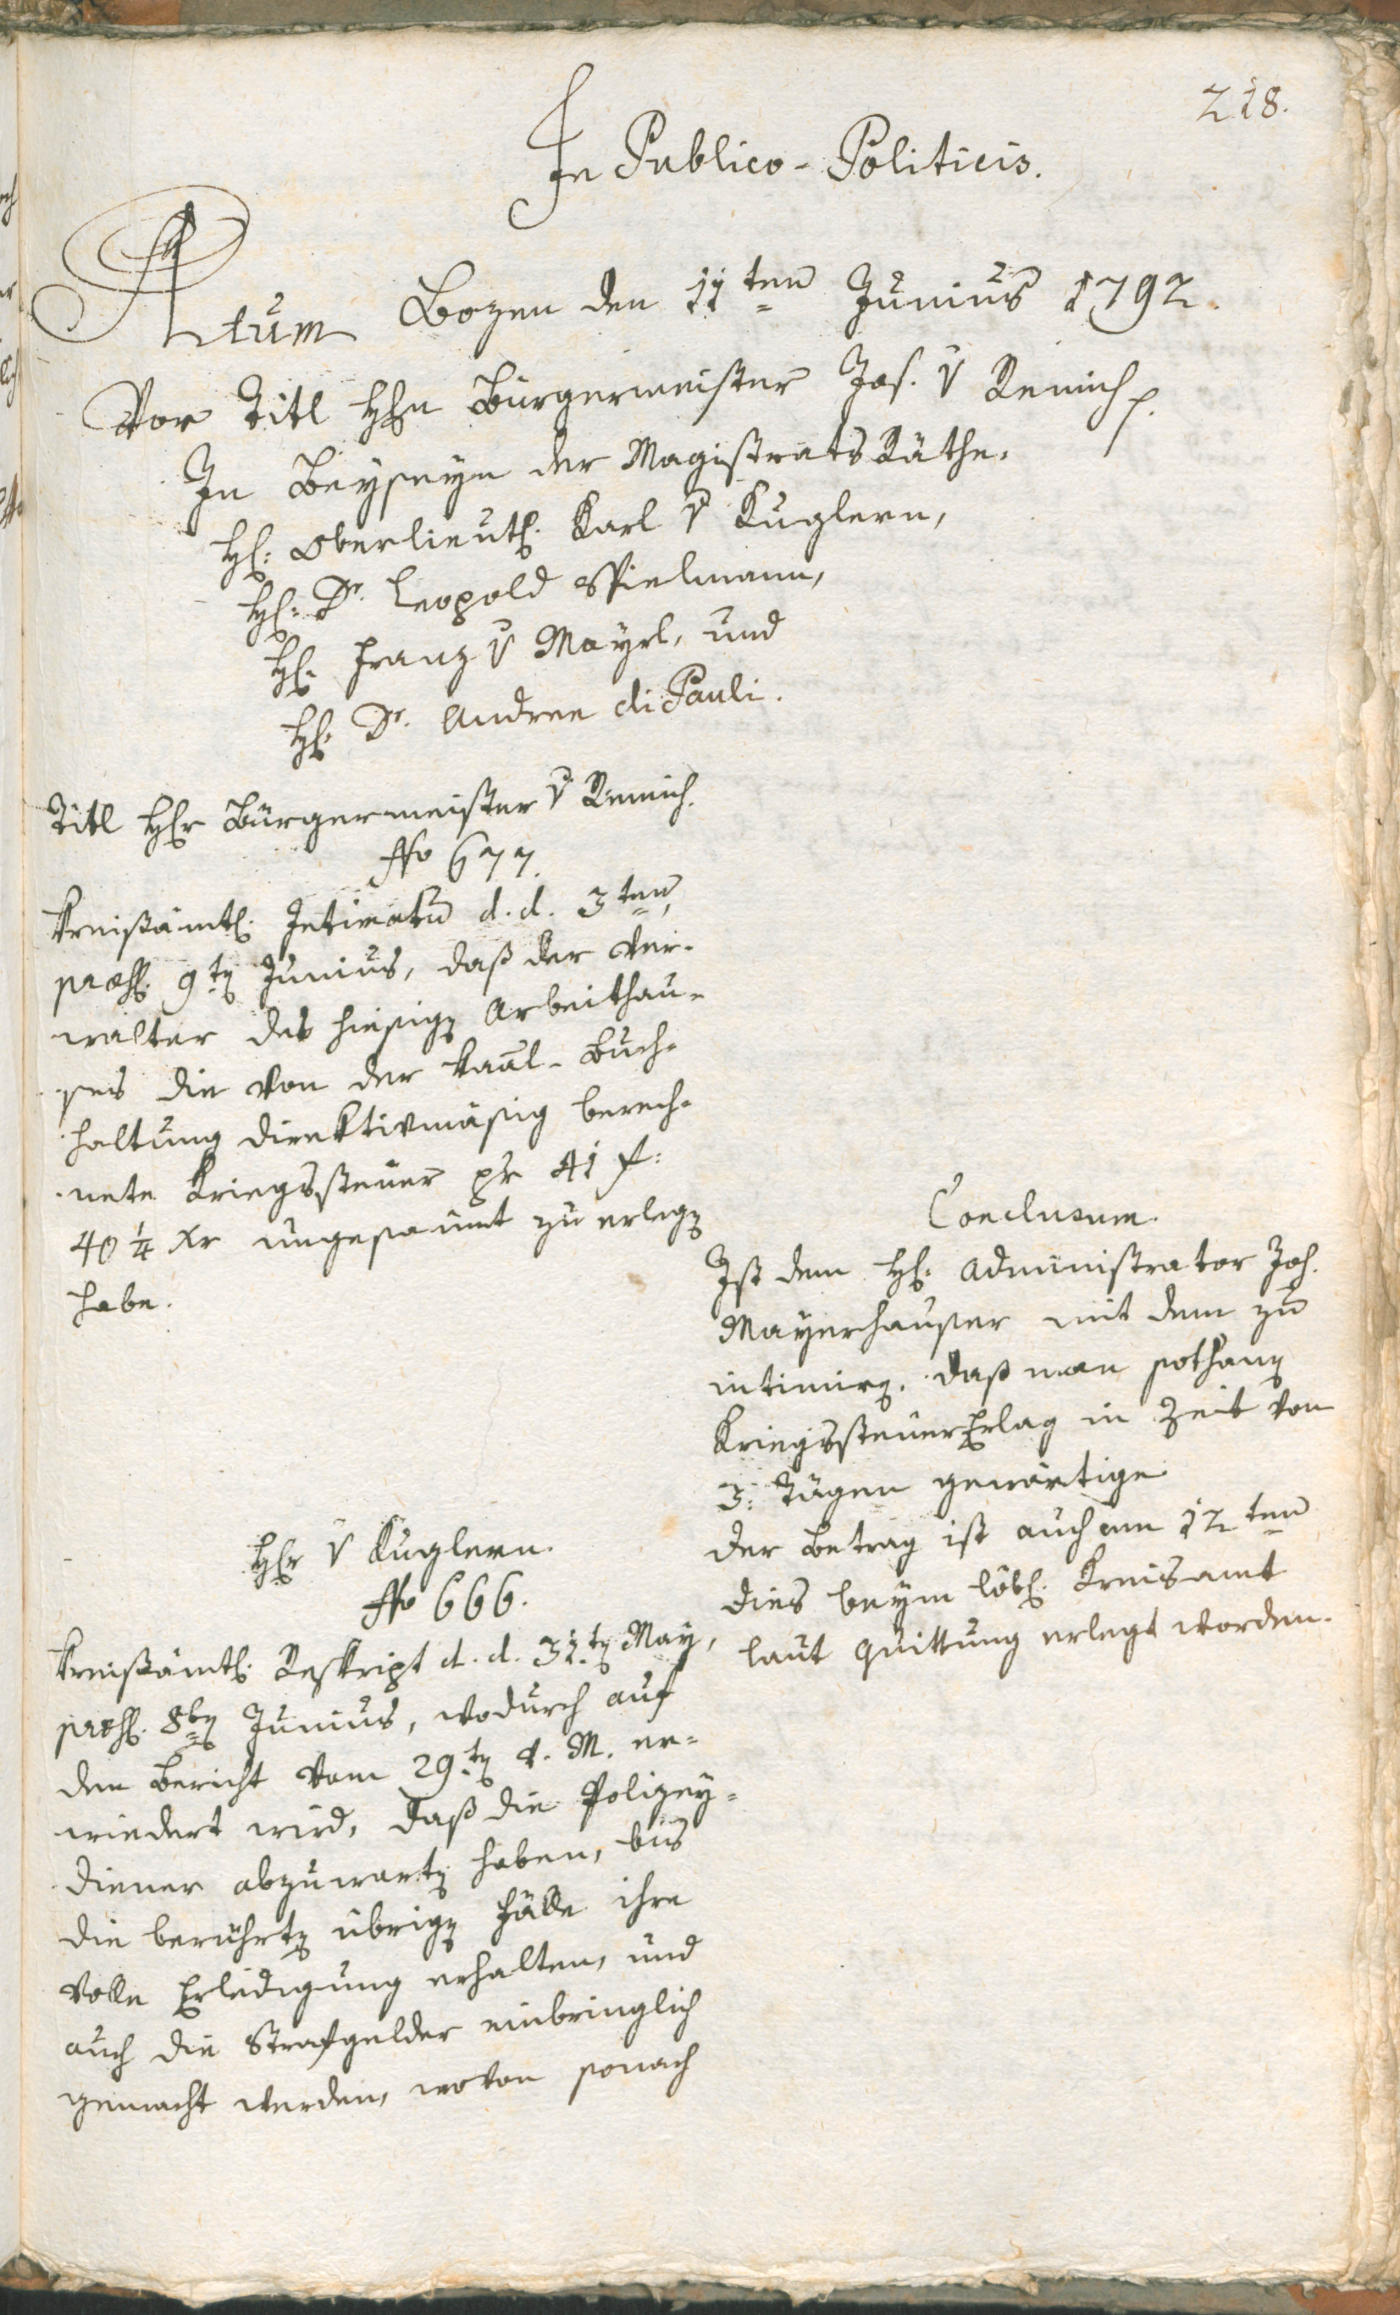 218.
In Publico-Politicis.
Actum Bozen den 11ten Junius 1792.
Vor Titl Hhn Bürgermeister Jos. v Remich p.
In Beyseyn der Magistrats Räthe.
H: Oberlieutl. Karl v Kuglern,
H: Dr. Leopold Spielmann,
H: Franz v Mayrl, und
H: Dr. Andree di Pauli.
Titl Hr Bürgermeister v Remich.
No 677.
Kreißämtl. Intimatum d. d. 3ten,
præs. 9ten Junius, daß der Ver-
walter des hiesigen Arbeithau-
ses die von der Kaal-Buch-
haltung direktivmäsig berech-
nete Kriegssteuer pr 41 f:
40 1/4 Xr ungesaumt zu erlegen
habe.
Conclusum.
Ist dem H: Administrator Joh.
Mayrhauser mit dem zu
intimiren, daß man sothanen
Kriegssteuer Erlag in Zeit von
3: Tägen gewärtige.
Der Betrag ist auch am 12ten
dies beym löbl. Kreisamt
laut Quittung erlegt worden.
Hr v Kuglern.
No 666.
Kreißämtl. Reskript d. d. 31ten May,
præs. 8ten Junius, wodurch auf
den Bericht vom 29ten v. M. er-
wiedert wird, daß die Polizey-
diener abzuwarten haben, bis
die berührten übrigen Fälle ihre
volle Erledigung erhalten, und
auch die Strafgelder einbringlich
gemacht werden, wovon sonach